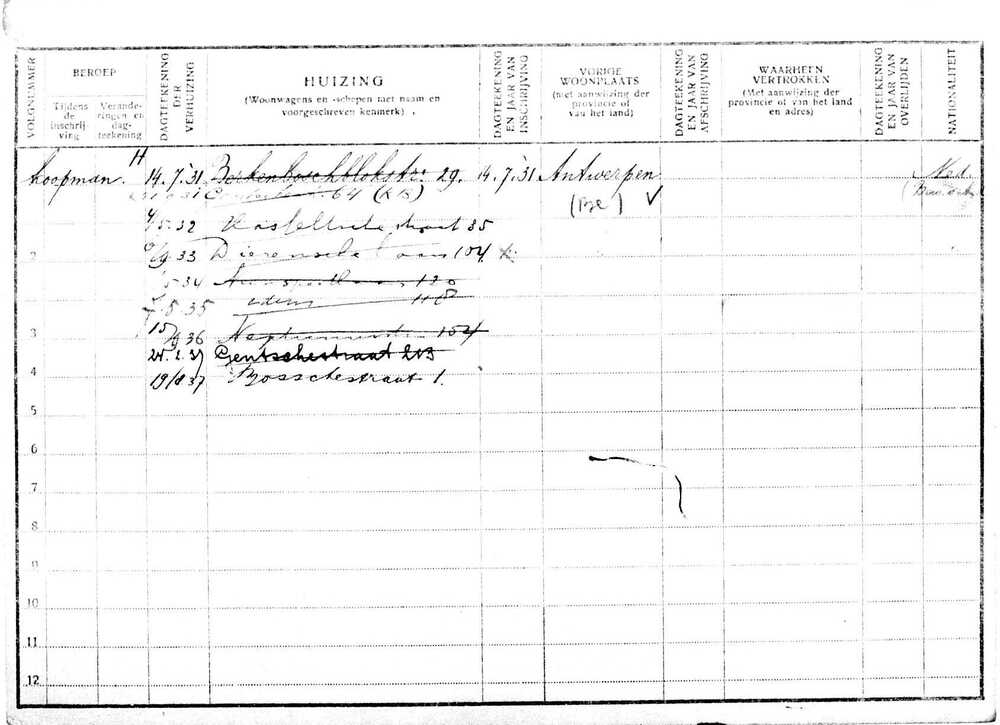 VOLGNUMMER
BEROEP
Tijdens de inschrijving
Veranderingen en dagteekening
DAGTEEKENING DER VERHUIZING
HUIZING
(Woonwagens en -schepen met naam en voorgeschreven kenmerk)
DAGTEEKENING EN JAAR VAN INSCHRIJVING
VORIGE WOONPLAATS
(met aanwijzing der provincie of van het land)
DAGTEEKENING EN JAAR VAN AFSCHRIJVING
WAARHEEN VERTROKKEN
(Met aanwijzing der provincie of van het land en adres)
DAGTEEKENING EN JAAR VAN OVERLIJDEN
NATIONALITEIT
koopman. H 14.7.31 Berkenboschblokstr. 29. 14.7.31 Antwerpen Ned.
64 (Be)
5.32 Hasseltsche straat 35
2 33 Dierensche laan 104
5 34 120
5.35 idem 118
3 15 36 Neptunusstr 154
37 Gentschestraat
4 19/8 37 Bosschestraat 1.
5
6
7
8
9
10
11
12